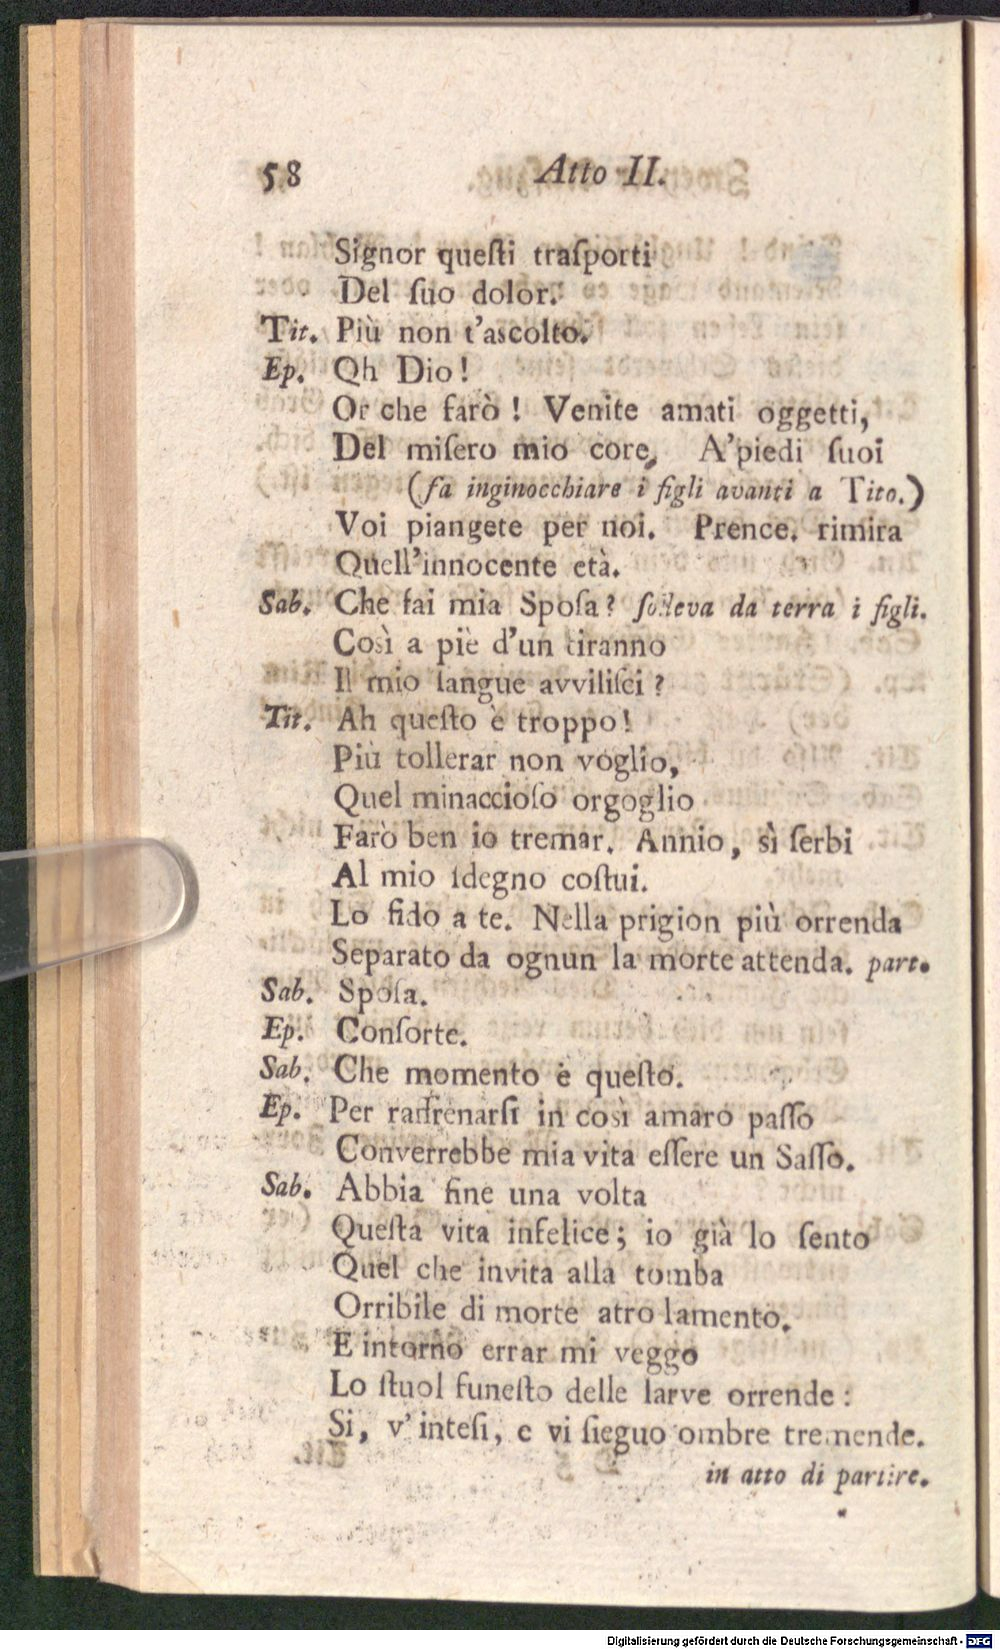 58 Atto II.
Signor queſti traſporti
Del ſuo dolor.
Tit. Più non t'ascolto.
Ep. Oh Dio!
Or che farò! Venite amati oggetti,
Del miſero mio core, A'piedi ſuoi
(fa inginocchiare i figli avanti a Tito.)
Voi piangete per noi. Prence. rimira
Quell'innocente età.
Sab. Che fai mia Spoſa? ſolleva da terra i figli.
Così a piè d'un tiranno
Il mio ſangue avviliſci?
Tit. Ah queſto è troppo!
Più tollerar non voglio,
Quel minaccioſo orgoglio
Farò ben io tremar. Annio, sì ſerbi
Al mio ſdegno coſtui.
Lo fido a te. Nella prigion più orrenda
Separato da ognun la morte attenda. part.
Sab. Spoſa.
Ep. Conſorte.
Sab. Che momento è queſto.
Ep. Per raffrenarſi in così amaro paſſo
Converrebbe mia vita eſſere un Saſſo.
Sab. Abbia fine una volta
Queſta vita infelice; io già lo ſento
Quel che invita alla tomba
Orribile di morte atro lamento.
E intorno errar mi veggo
Lo ſtuol funeſto delle larve orrende:
Si, v' inteſi, e vi ſieguo ombre tremende.
in atto di partire.
Digitalisierung gefördert durch die Deutsche Forschungsgemeinschaft - DFG